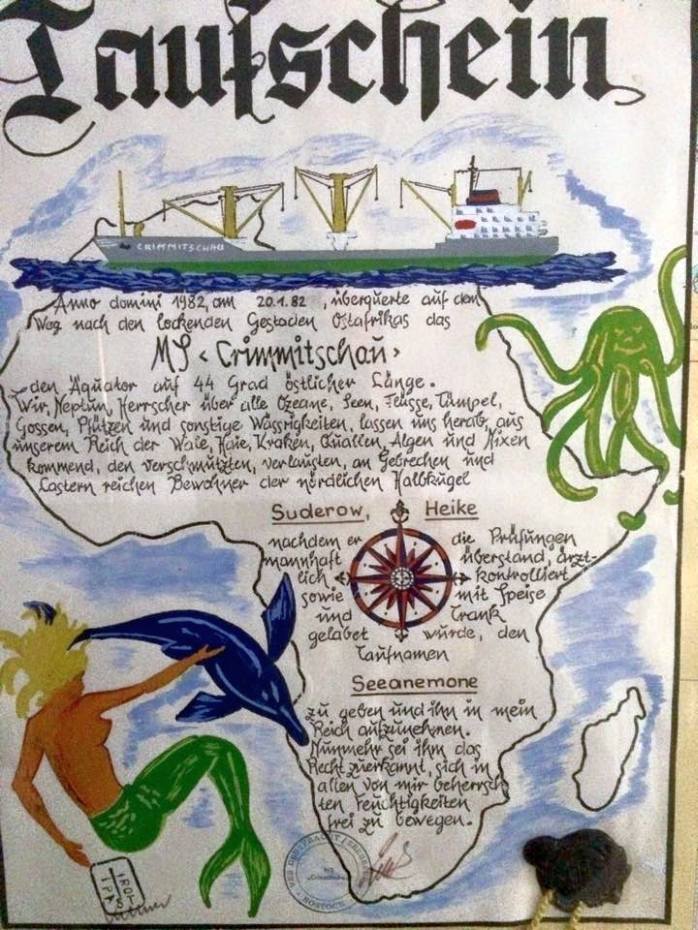 Taufschein
CRIMMITSCHAU
Anno domini 1982, am 20.1.82, überquerte auf dem
Weg nach den lockenden Gestaden Ostafrikas das
MS «Crimmitschau»
den Äquator auf 44 Grad östlicher Länge.
Wir, Neptun, Herrscher über alle Ozeane, Seen, Flüsse, Tümpel,
Gossen, Pfützen und sonstige Wässrigkeiten, lassen uns herab, aus
unserem Reich der Wale, Haie, Kraken, Quallen, Algen und Nixen
kommend, den verschmutzten, verlausten, an Gebrechen und
Lastern reichen Bewohner der nördlichen Halbkugel
Suderow, Heike
nachdem er die Prüfungen
mannhaft überstand, ärzt-
lich kontrolliert
sowie mit Speise
und Trank
gelabet wurde, den
Taufnamen
Seeanemone
zu geben und ihn in mein
Reich aufzunehmen.
Nunmehr sei ihm das
Recht zuerkannt, sich in
allen von mir beherrsch
ten Feuchtigkeiten
frei zu bewegen.
ROSTOCK